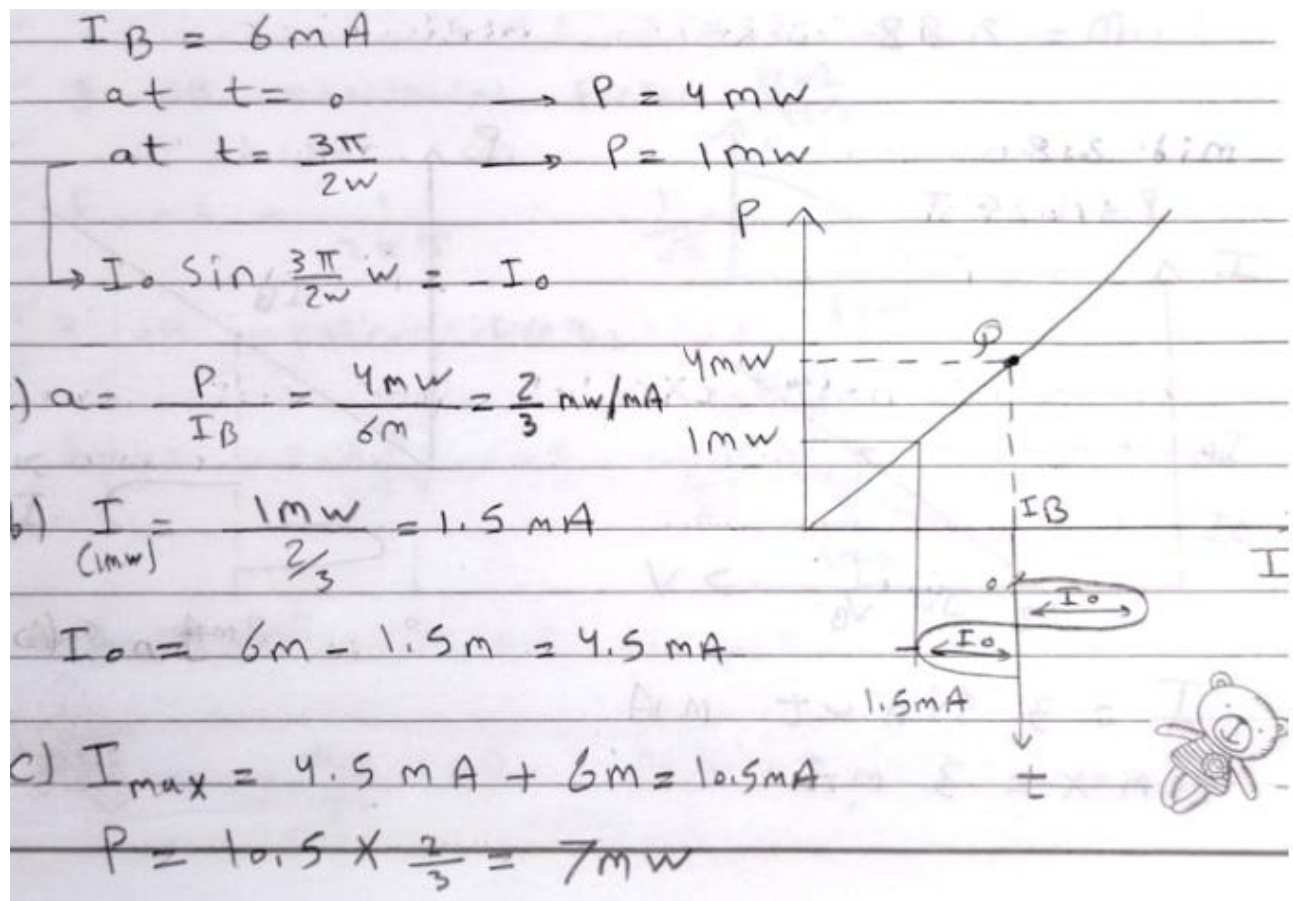 I_B = 6mA
at t = 0 → P = 4mW
at t = 3π/2w → P = 1mW
↳ I_0 Sin 3π/2w w = -I_0
) a = P/I_B = 4mW/6m = 2/3 mW/mA
b) I (1mW) = 1mW / 2/3 = 1.5 mA
I_0 = 6m - 1.5m = 4.5 mA
c) I_max = 4.5 mA + 6m = 10.5mA
P = 10.5 × 2/3 = 7mW
P
Q
4mW
1mW
I_B
I
0
I_0
I_0
1.5mA
t